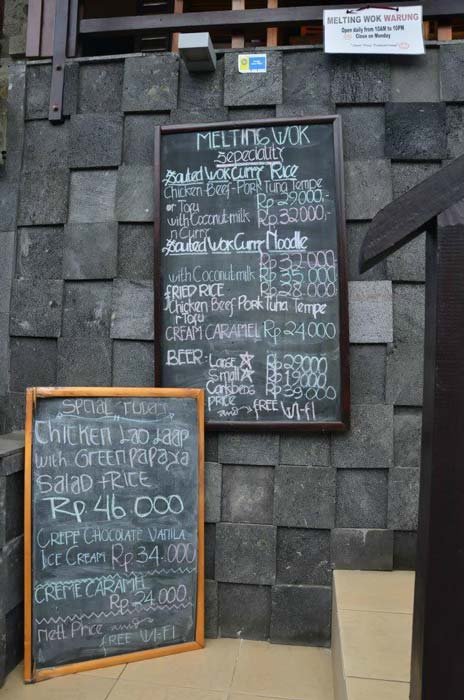 MELTING WOK WARUNG
Open daily from 10AM to 10PM
Close on Monday
MELTING WOK
Speciality
Sauted Wok Curry Rice
Chicken Beef-Pork Tuna Tempe
or Toru Rp 29000,-
with Coconut milk Rp 32000,-
n Curry
Sauted Wok Curry Noodle
Rp 32000
with Coconut milk Rp 35000
FRIED RICE Rp 28000
Chicken Beef Pork Tuna Tempe
or Toru
CREAM CARAMEL Rp 24000
BEER: Large Rp 29000
Small Rp 19000
Carlsberg Rp 39000
price
and FREE WI-FI
Spcial Today
Chicken Lao Laap
with Green papaya
Salad & RICE
Rp. 46.000
CREPE CHOCOLATE VANILA
ICE CREAM Rp 34.000
CREME CARAMEL
Rp 24.000
nett Price and FREE WI-FI